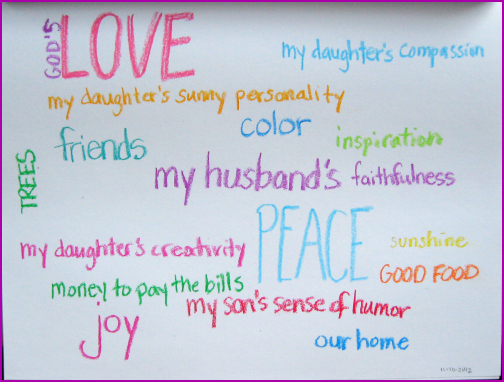 GOD'S LOVE
my daughter's compassion
my daughter's sunny personality
color
inspiration
friends
TREES
my husband's faithfulness
PEACE
sunshine
my daughter's creativity
GOOD FOOD
money to pay the bills
my son's sense of humor
joy
our home